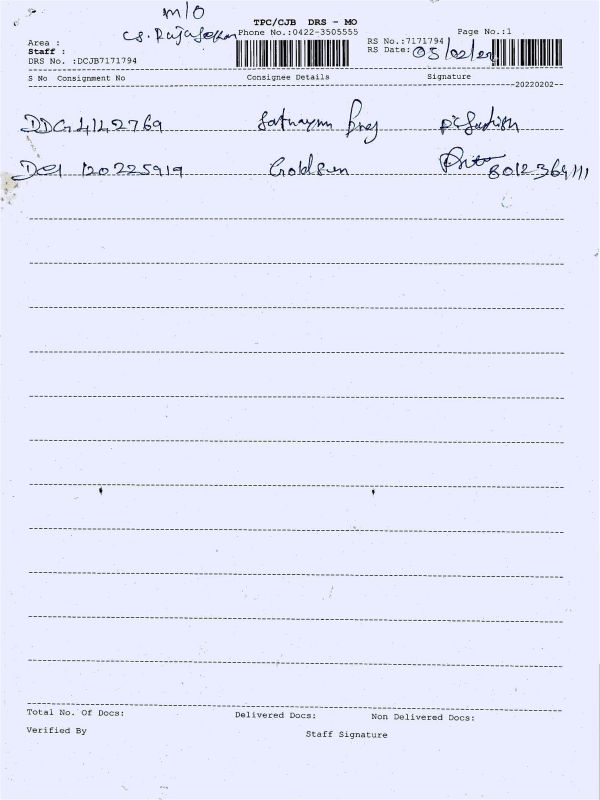 M/O
TPC/CJB DRS - MO
Phone No.:0422-3505555
Page No.:1
Area :
Staff :
RS No.:7171794
DRS No. :DCJB7171794
RS Date: 05/02/22
S No Consignment No Consignee Details Signature
20220202
DDG4142769
120225919 Goldsun 8012364111
Total No. Of Docs: Delivered Docs: Non Delivered Docs:
Verified By Staff Signature